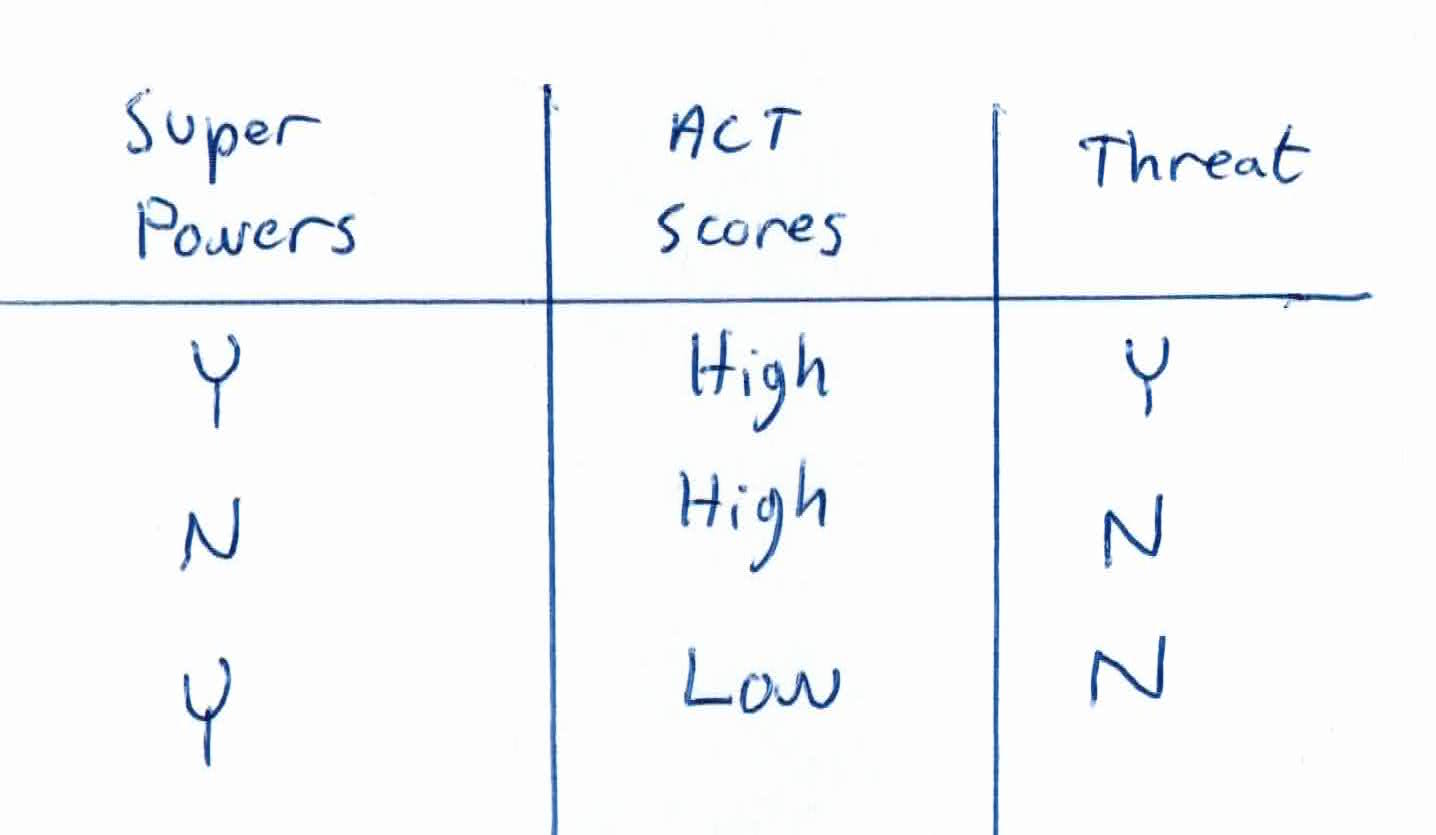 Super Powers | ACT Scores | Threat
Y | High | Y
N | High | N
Y | Low | N